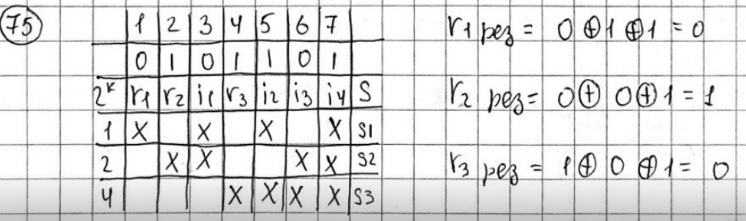 75
1 2 3 4 5 6 7
0 1 0 1 1 0 1
2^k r1 r2 i1 r3 i2 i3 i4 S
1 X X X X S1
2 X X X X S2
4 X X X X S3
r1 рез = 0 ⊕ 1 ⊕ 1 = 0
r2 рез = 0 ⊕ 0 ⊕ 1 = 1
r3 рез = 1 ⊕ 0 ⊕ 1 = 0